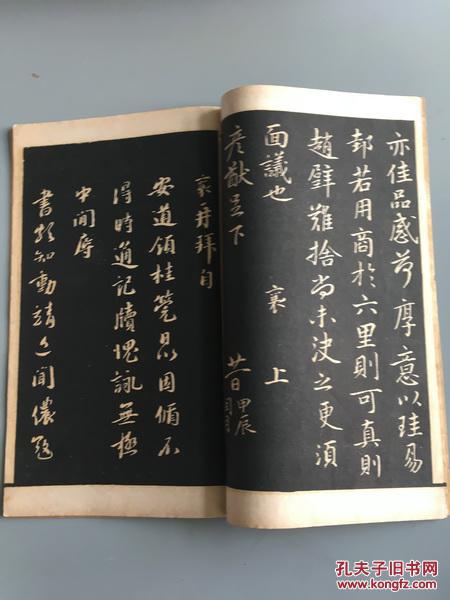 亦佳品感荷厚意以珪易
邽若用商於六里則可真則
趙璧難捨尚未決之更須
面議也 襄 上
彥猷足下 廿一日甲辰
閏月
襄再拜自
安道領桂筦日以因循不
得時通記牘愧詠無極
中間辱
書頗知動靜近聞儂寇
孔夫子旧书网